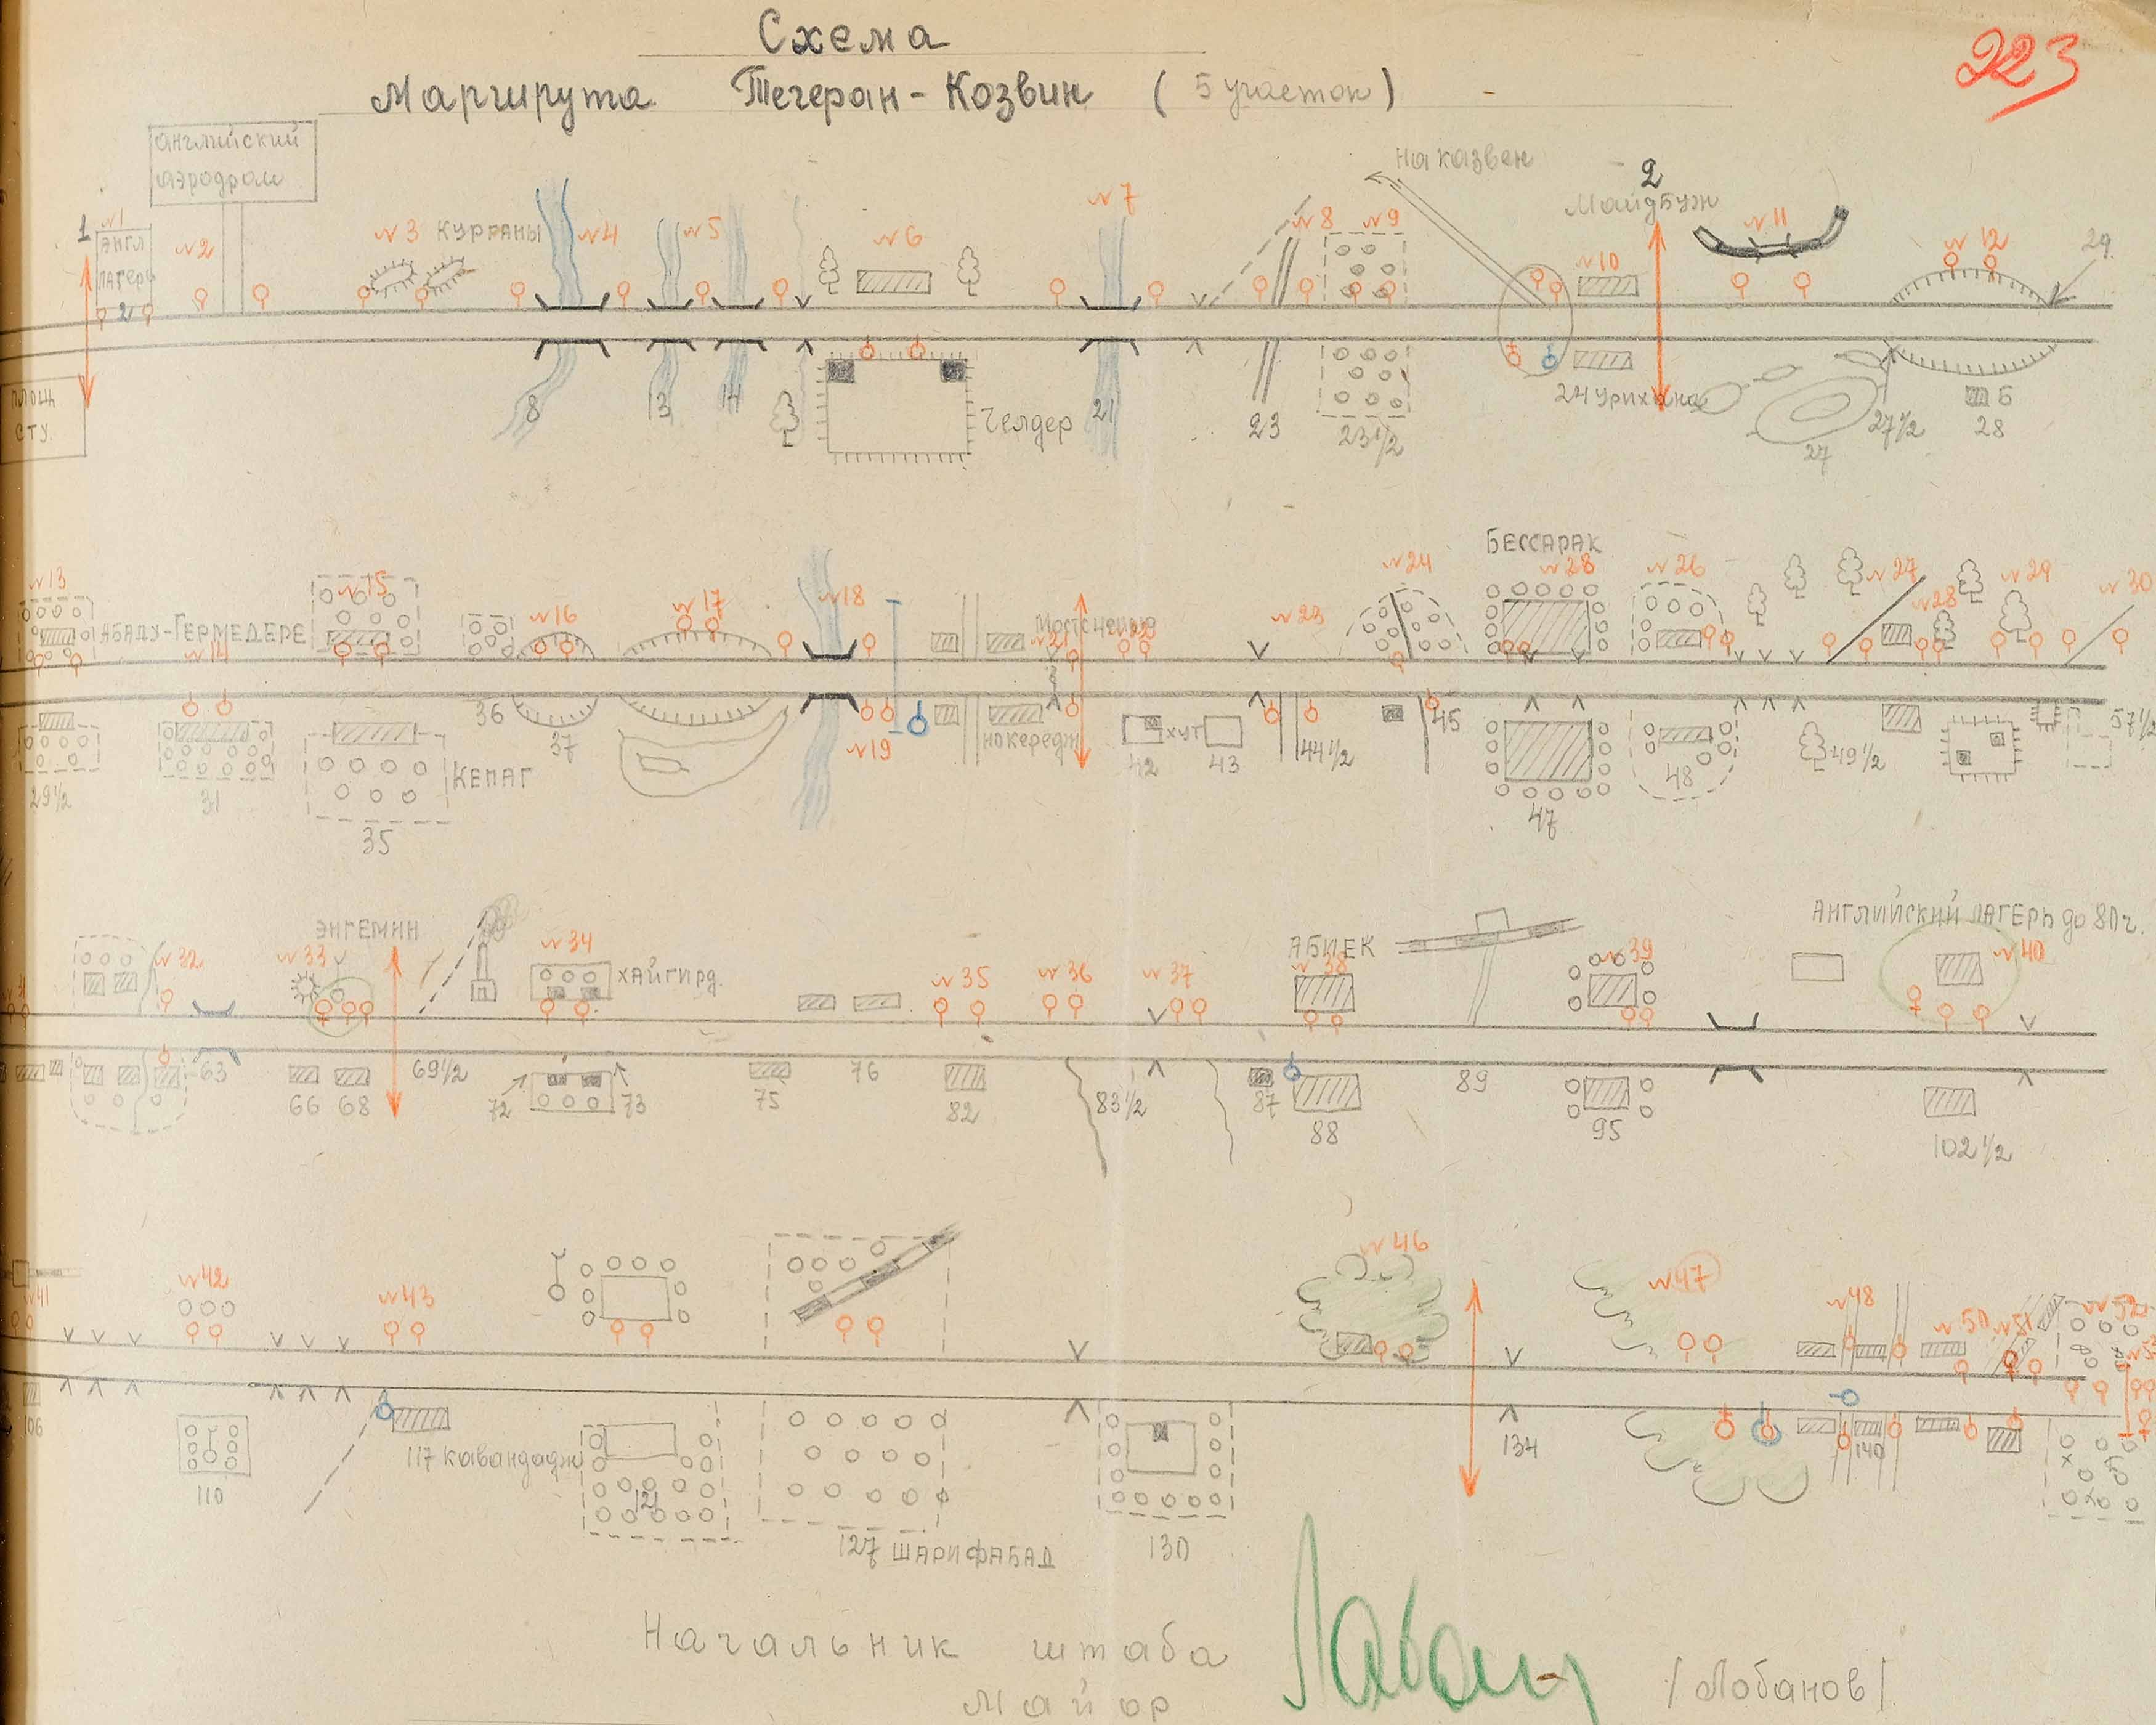 Схема
223
Маршрута Тегеран-Козвин (5 участок)
английский
аэродром
На казвен
2
Майдбуж
1
№1
АНГЛ
ЛАГЕРЬ
2
№2
№3 КУРРАНЫ
№4
№5
№6
№7
№8
№9
№10
№11
№12
29
площ
СТУ.
8
13
14
Челдер
21
23
23 1/2
24 Урихана
27
27 1/2
Б
28
БЕССАРАК
№13
АБАДУ-ГЕРМЕДЕРЕ
№14
№15
№16
№17
№18
№23
№24
№28
№26
№27
№28
№29
№30
29 1/2
31
35
КЕПАГ
36
37
№19
нокередж
42
ХУТ
43
44 1/2
45
47
48
49 1/2
57 1/2
ЭНГЕМИН
АНГЛИЙСКИЙ ЛАГЕРЬ до 80 ч.
№32
№33
№34
ХАЙГИРД
№35
№36
№37
АБИЕК
№38
№39
№40
63
66
68
69 1/2
72
73
75
76
82
83 1/2
87
88
89
95
102 1/2
№41
№42
№43
№46
№47
№48
№50
№51
№52
106
110
117 Кавандадж
121
127 ШАРИФАБАД
130
134
140
Начальник штаба
Майор
/Лобанов/